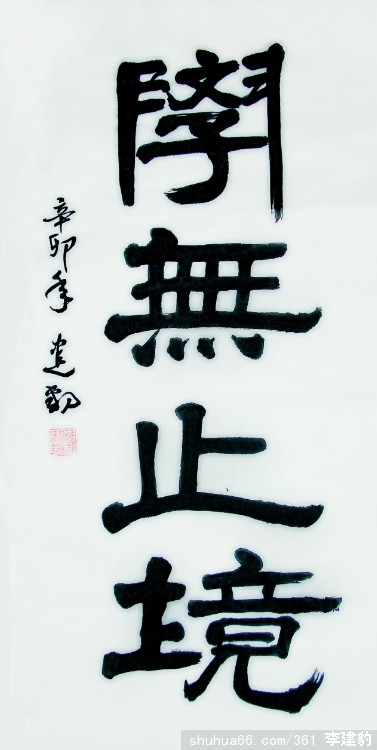 學無止境
辛卯年 建豹
shuhua66.com/361 李建豹